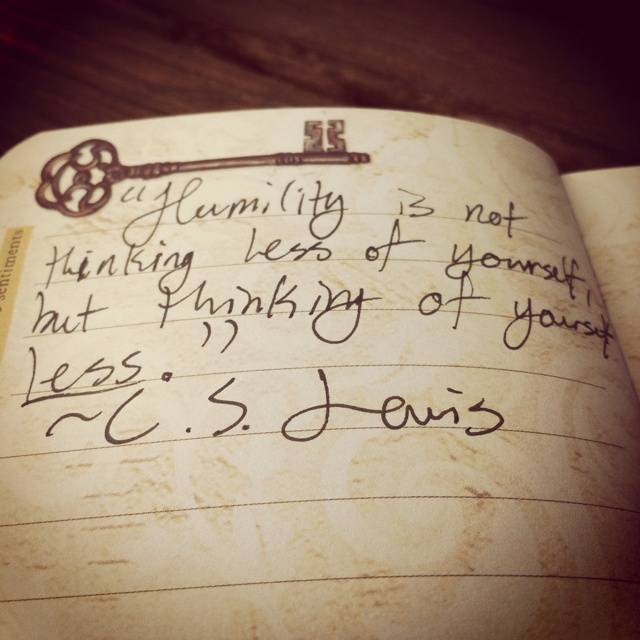 "Humility is not
thinking less of yourself,
but thinking of yourself
Less."
~C.S. Lewis
sentiments